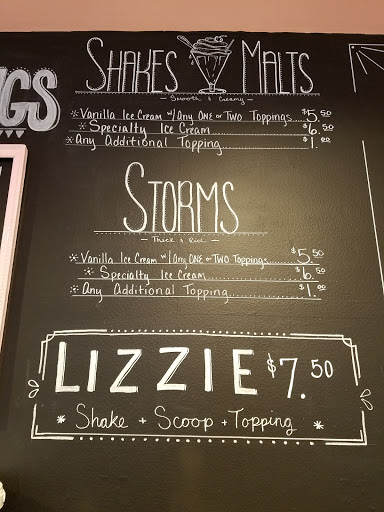 GS
SHAKES MALTS
- Smooth & Creamy -
* Vanilla Ice Cream w/ Any ONE or TWO Toppings... $5.50
* Specialty Ice Cream... $6.50
* Any Additional Topping... $1.00
STORMS
- Thick & Rich -
* Vanilla Ice Cream w/ Any ONE or TWO Toppings... $5.50
* Specialty Ice Cream... $6.50
* Any Additional Topping... $1.00
LIZZIE $7.50
* Shake + Scoop + Topping *